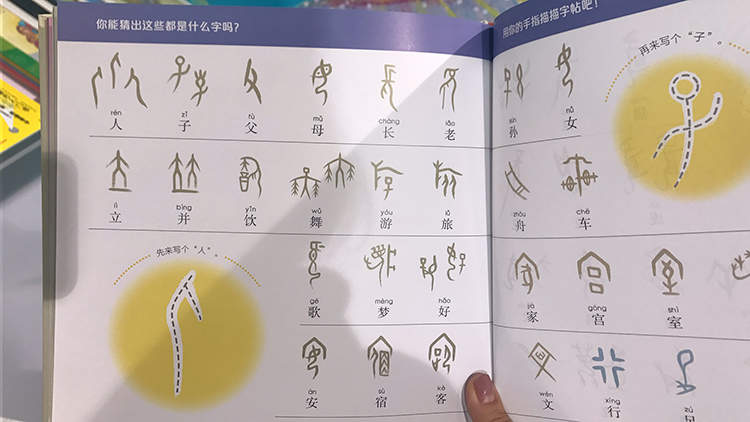 你能猜出这些都是什么字吗？
rén zǐ fù mǔ cháng lǎo
人 子 父 母 长 老
lì bìng yǐn wǔ yóu lǚ
立 并 饮 舞 游 旅
先来写个“人”。
gē mèng hǎo
歌 梦 好
ān sù kè
安 宿 客
用你的手指描描字帖吧！
再来写个“子”。
sūn nǚ
孙 女
zhōu chē
舟 车
jiā gōng shì
家 宫 室
wén xíng
文 行